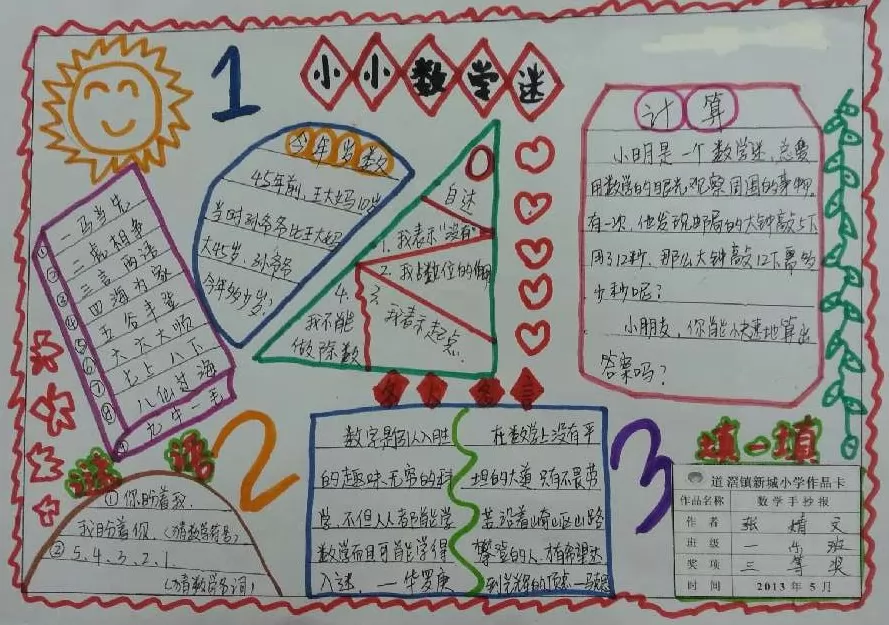 1
小小数学迷
一马当先
二虎相争
三言两语
四海为家
五谷丰登
六六大顺
七上八下
八仙过海
九牛一毛
今年岁数
45年前,王大妈10岁
当时孙爷爷比王大妈
大45岁,孙爷爷
今年多少岁?
0
自述
1.我表示"没有"
2.我占数位的
3.我表示起点.
4.我不能
做除数
计算
小明是一个数学迷,总爱
用数学的眼光观察周围的事物
有一次,他发现邮局的大钟敲5下
用了12秒,那么大钟敲12下需多
少秒呢?
小朋友,你能快速地算出
答案吗?
谜语
①你盼着我,
我盼着你.(猜数学符号)
②5.4.3.2.1.
(猜数学名词)
2
名人名言
数学是引人入胜
的,趣味无穷的科
学,不但人人都能学
数学而且可能学得
入迷. 一华罗庚
在数学上没有平
坦的大道只有不畏劳
苦沿着崎岖山路
攀登的人,才有希望达
到光辉的顶点一马克思
3
填一填
道滘镇新城小学作品卡
作品名称 数学手抄报
作者 张婧文
班级
奖项 三等奖
时间 2013年5月